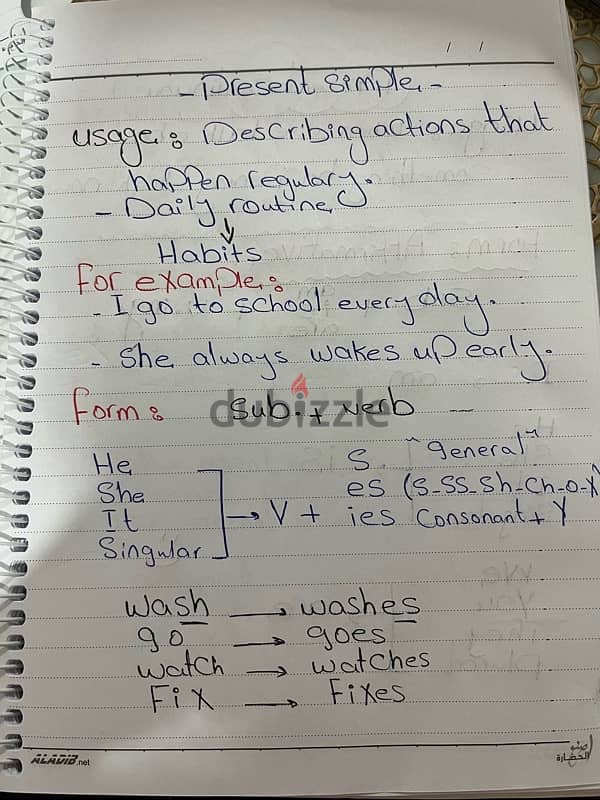 / /
- Present simple -
usage: Describing actions that
happen regulary.
- Daily routine
Habits
For example:
- I go to school every day.
- She always wakes up early.
Form: Sub. + verb
dubizzle
He
She
It
Singular
→ V +
s "general"
es (s-ss-sh-ch-o-x)
ies consonant + y
wash → washes
go → goes
watch → watches
Fix → Fixes
ALADIB.net
الحضارة